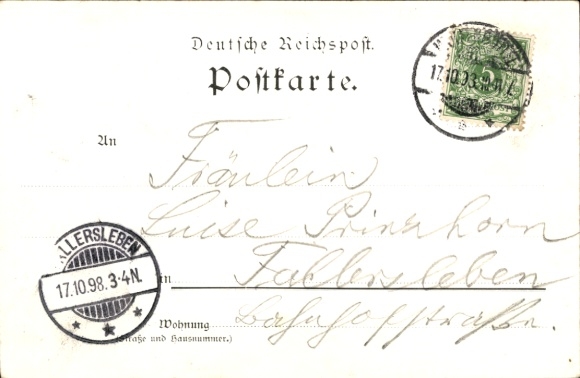 Deutsche Reichspost.
Postkarte.
17.10.98
An
Fräulein
Luise Prinzhorn
FALLERSLEBEN
17.10.98. 3-4N.
in Fallersleben
Bahnhofstraße.
Wohnung
(Straße und Hausnummer.)